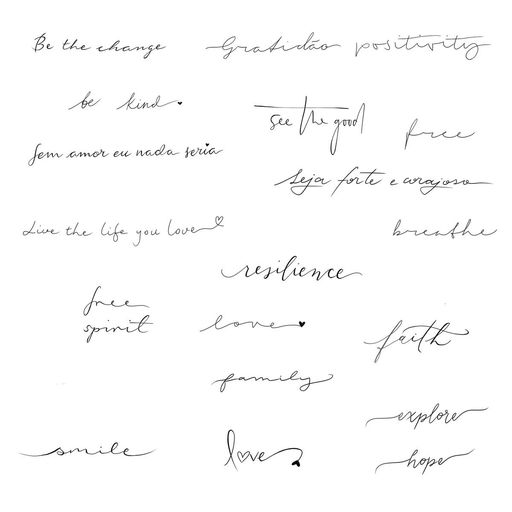 Be the change
Gratidão
positivity
be kind
see the good
free
Sem amor eu nada seria
Seja forte e corajoso
Live the life you love
breathe
resilience
free
spirit
love
faith
family
explore
smile
love
hope